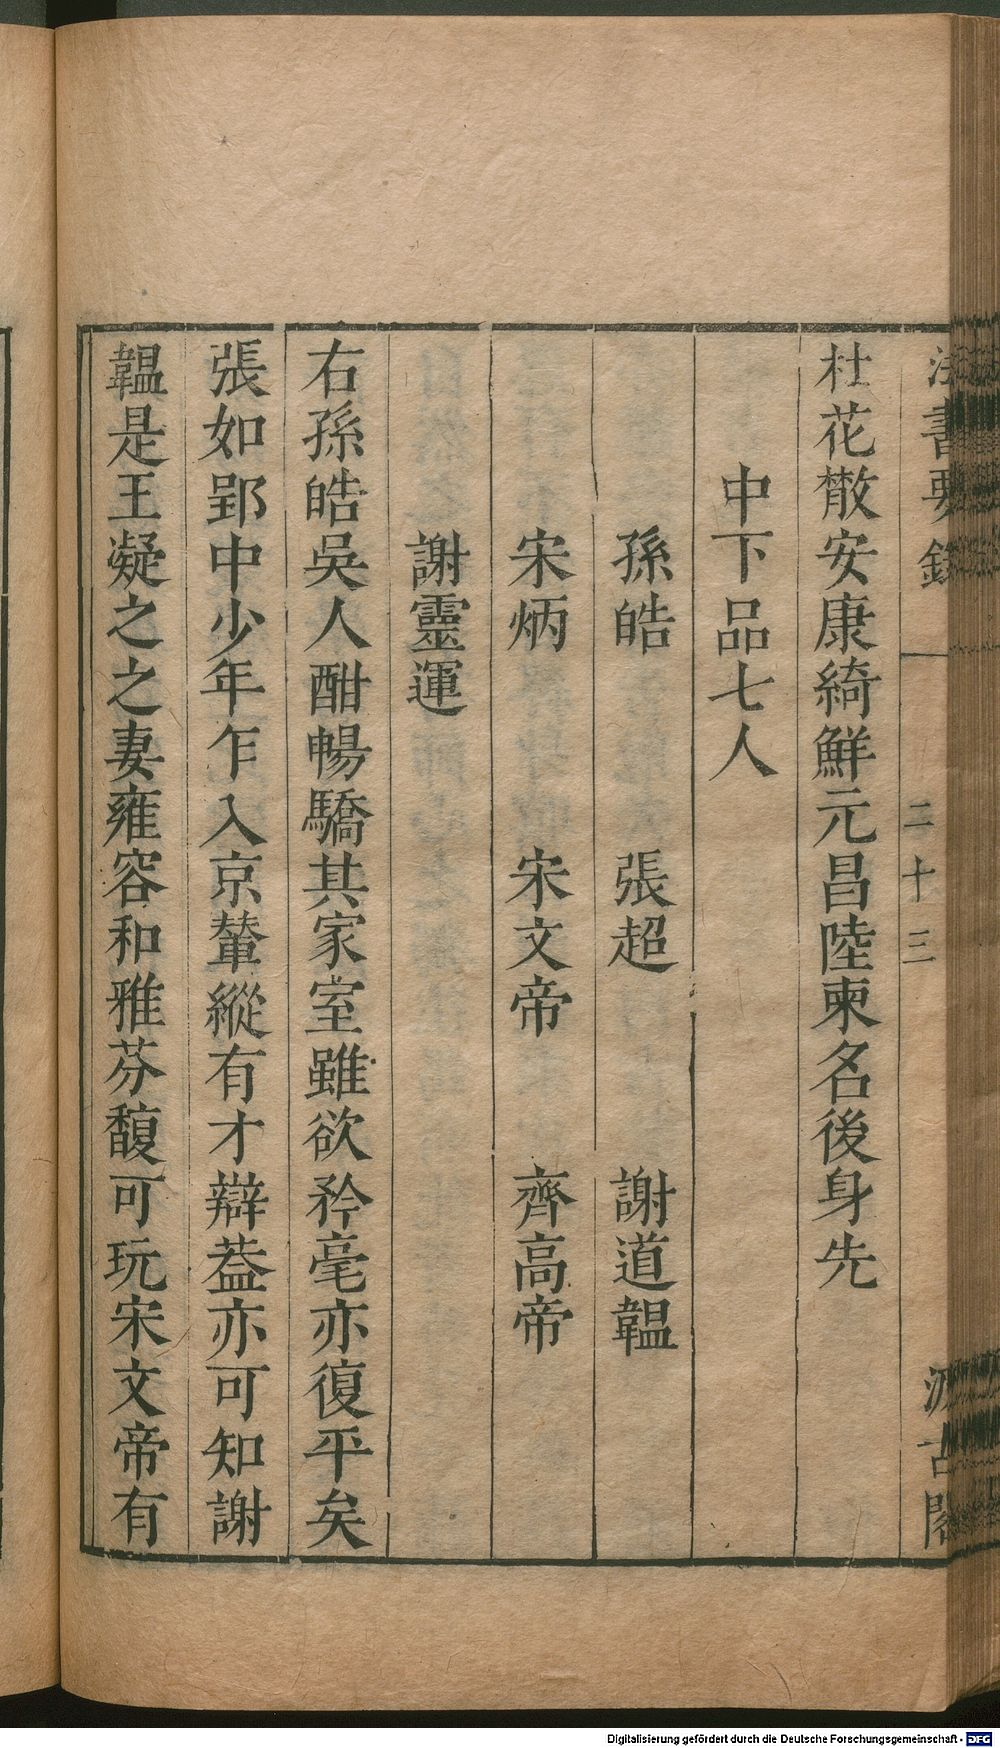 法書要錄 二十三 汲古閣
杜花散安康綺鮮元昌陸柬名後身先
中下品七人
孫皓 張超 謝道韞
宋炳 宋文帝 齊高帝
謝靈運
右孫皓吳人酣暢驕其家室雖欲矜毫亦復平矣
張如郢中少年乍入京輦縱有才辯葢亦可知謝
韞是王凝之之妻雍容和雅芬馥可玩宋文帝有
Digitalisierung gefördert durch die Deutsche Forschungsgemeinschaft - DFG